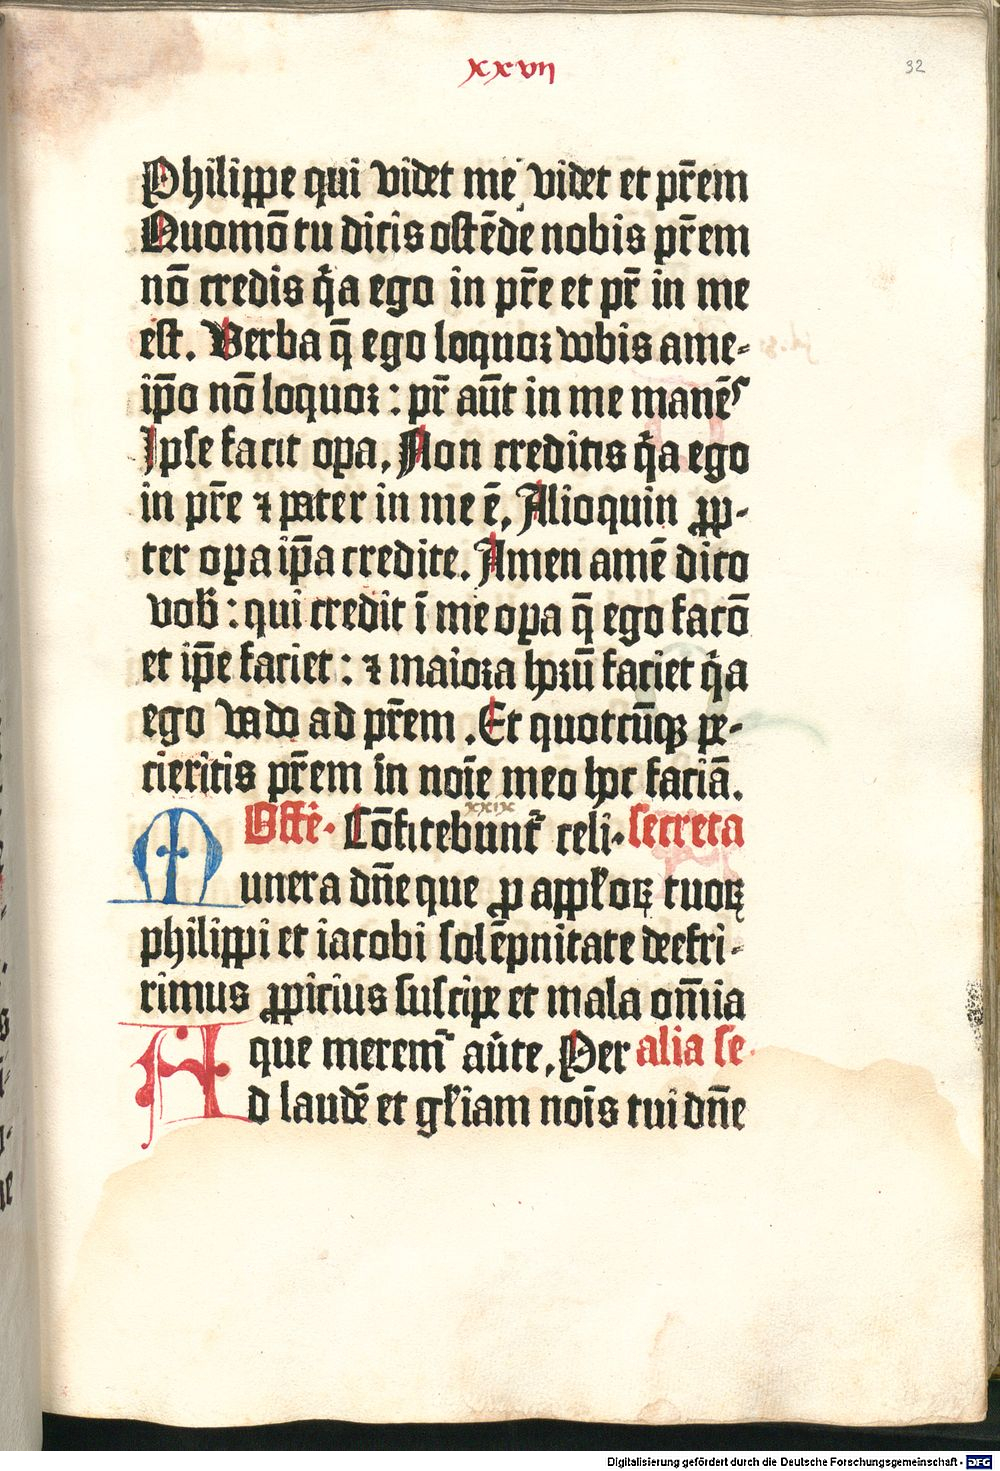 xxvii
32
Philippe qui videt me, videt et pr̄em
Quomō tu dicis ostēde nobis pr̄em
nō credis q̇a ego in pr̄e et pr̄ in me
est. Verba q̄ ego loquor vobis ame-
ip̄o nō loquor : pr̄ aūt in me manēs
Ipse facit opa. Non creditis q̇a ego
in pr̄e ⁊ pater in me ē. Alioquin ꝓp-
ter opa ip̄a credite. Amen amē dico
vob̄ : qui credit ī me opa q̄ ego facō
et ip̄e faciet : ⁊ maiora hoꝝū faciet q̇a
ego vado ad pr̄em . Et quotcūqꝫ pe-
cieritis pr̄em in noīe meo hoc faciā.
xxix
Offē. Cōfitebunt᷑ celi. secreta
Munera dn̄e que ꝓ appl̄oꝝ tuoꝝ
philippi et iacobi solēpnitate defe-
rimus ꝓpicius suscipe et mala om̄ia
que merem᷑ aūte. Per alia se
Ad laudē et gl̄iam noīs tui dn̄e
Digitalisierung gefördert durch die Deutsche Forschungsgemeinschaft - DFG